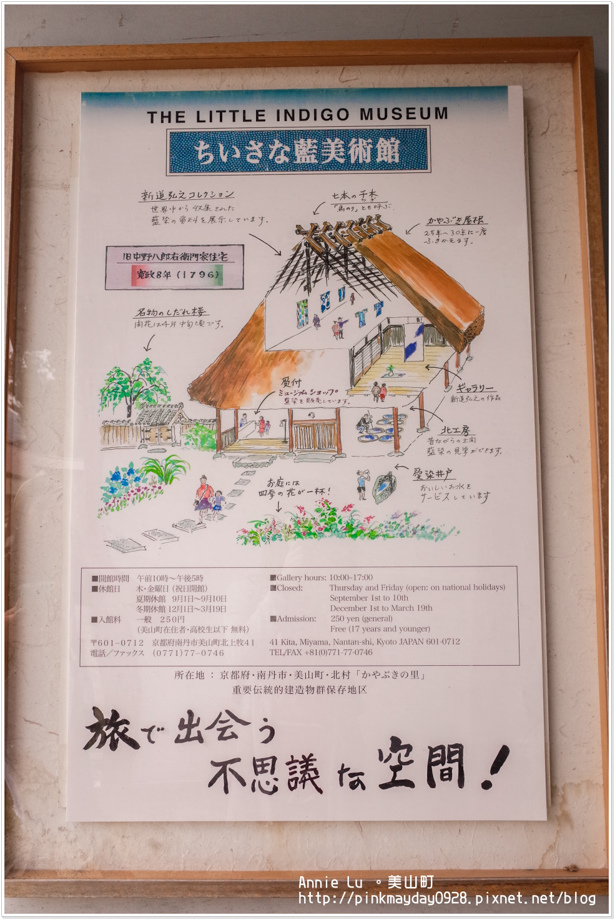 THE LITTLE INDIGO MUSEUM
ちいさな藍美術館
新道弘之コレクション
世界中から収集された
藍染の布を展示しています。
七本の千木
かやぶき屋根
旧中野八郎右衛門家住宅
寛政8年(1796)
名物のしだれ桜
開花は4月中旬頃です。
受付
ミュージアムショップ
藍染を販売しています。
ギャラリー
新道弘之の作品
北工房
昔ながらの土間
藍染の見学ができます。
愛染井戸
おいしいお水を
サービスしています
お庭には
四季の花が一杯!
■開館時間 午前10時〜午後5時
■休館日 木・金曜日(祝日開館)
夏期休館 9月1日〜9月10日
冬期休館 12月1日〜3月19日
■入館料 一般 250円
(美山町在住者・高校生以下 無料)
〒601−0712 京都府南丹市美山町北上牧41
電話/ファックス (0771)77−0746
■Gallery hours: 10:00-17:00
■Closed: Thursday and Friday (open: on national holidays)
September 1st to 10th
December 1st to March 19th
■Admission: 250 yen (general)
Free (17 years and younger)
41 Kita, Miyama, Nantan-shi, Kyoto JAPAN 601-0712
TEL/FAX +81(0)771-77-0746
所在地 : 京都府・南丹市・美山町・北村「かやぶきの里」
重要伝統的建造物群保存地区
旅で出会う
不思議な空間!
Annie Lu 。美山町
http://pinkmayday0928.pixnet.net/blog